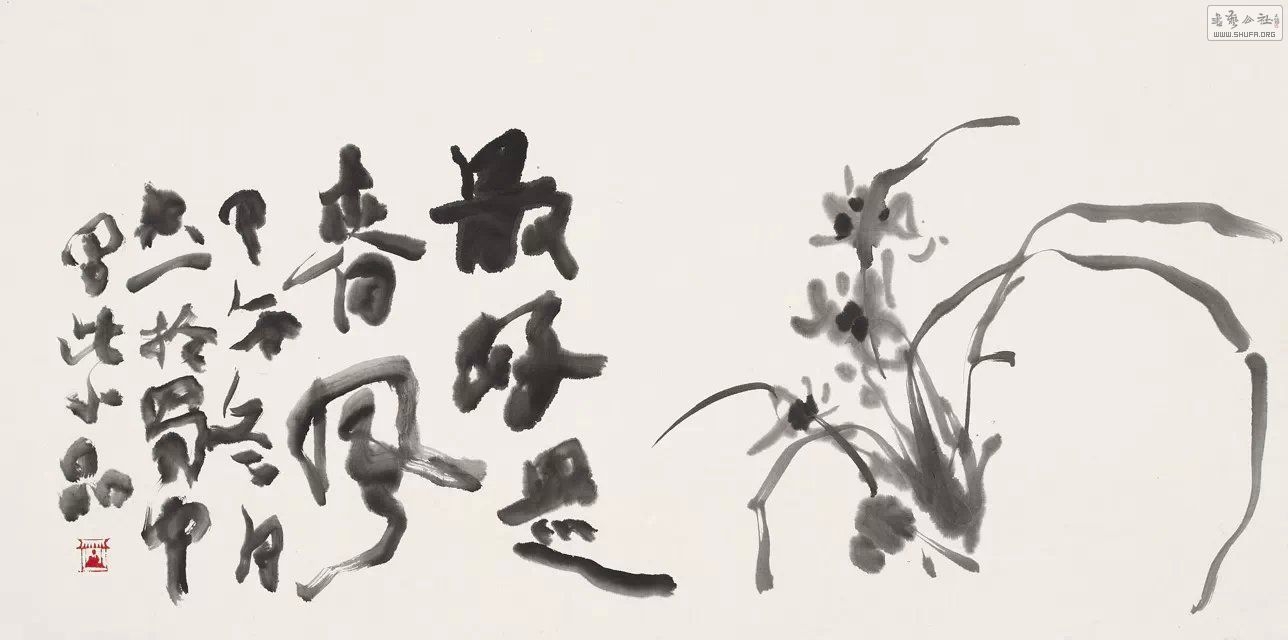 最好是
春風
甲午冬月
一於蜀中
此小品
書藝公社
WWW.SHUFA.ORG